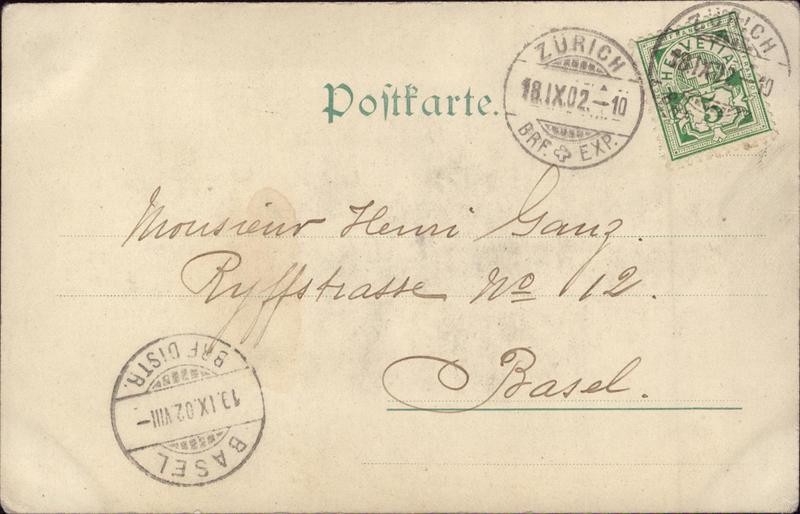 Postkarte.
ZÜRICH
18.IX.02.-10
BRF. EXP.
ZÜRICH
18.IX.02 10
HELVETIA
5
Monsieur Henri Ganz.
Ryffstrasse No 12.
Basel.
BRF DISTR.
.IX.02.VIII-
BASEL